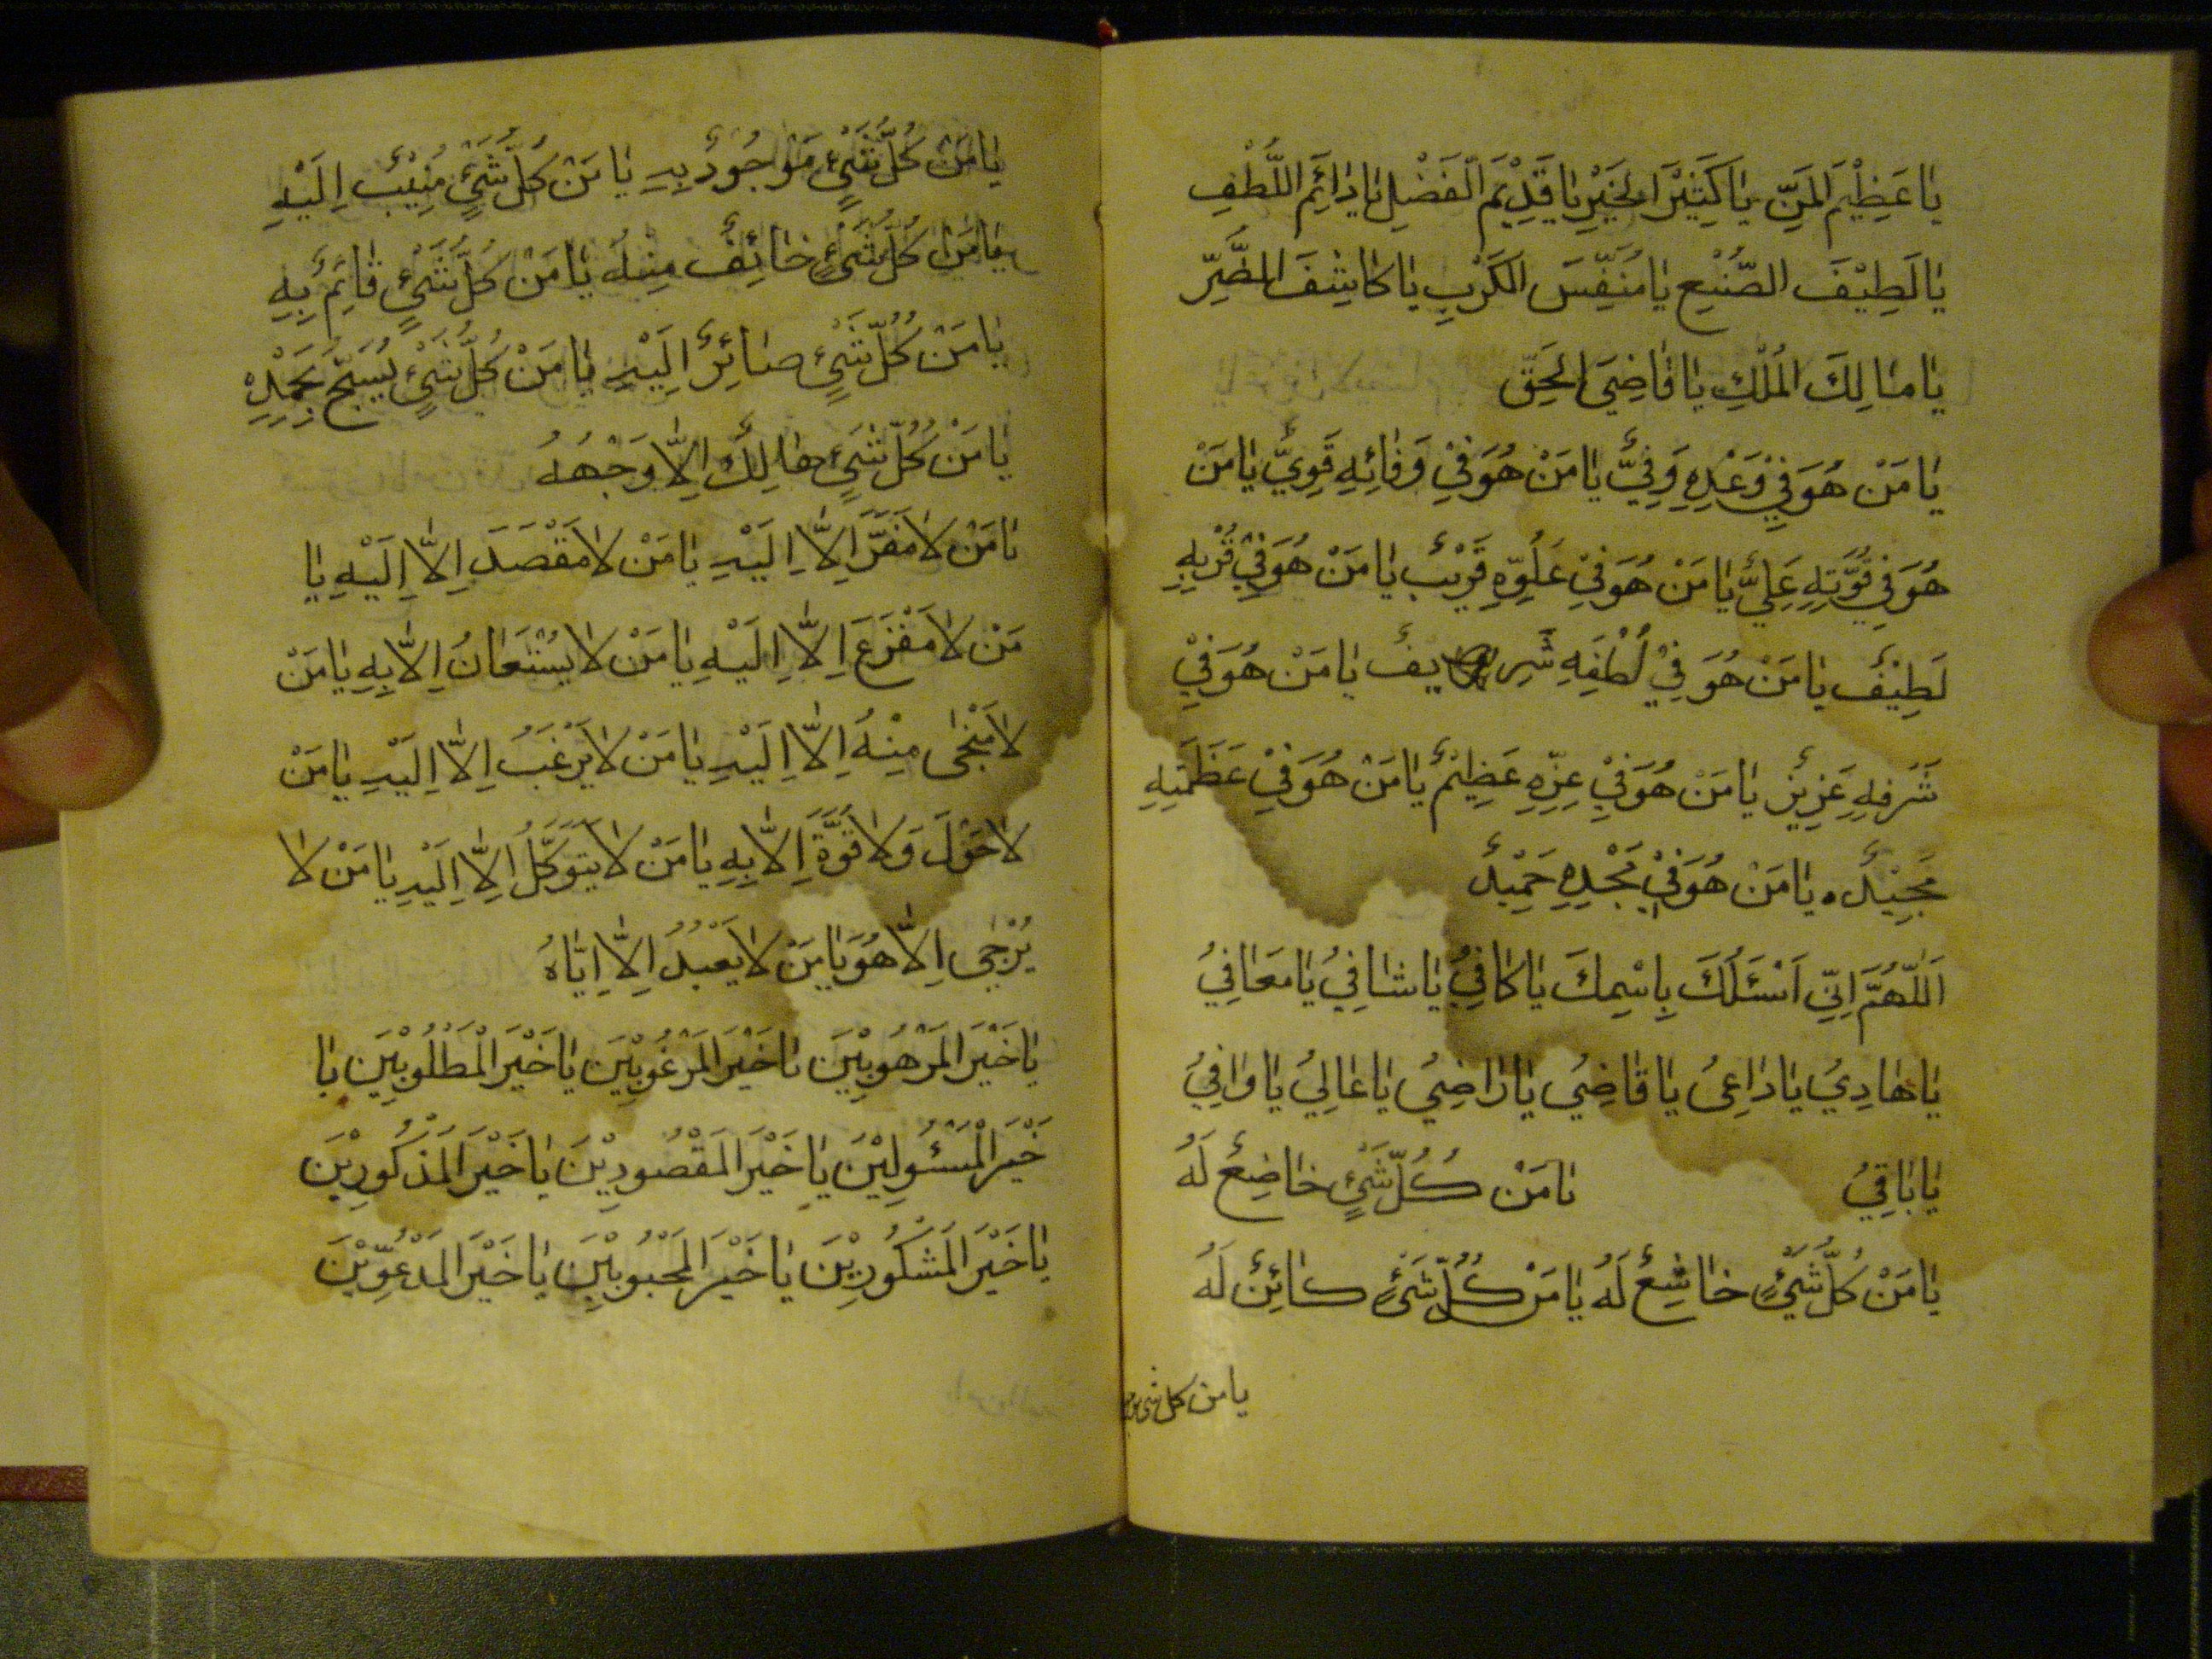 يَا عَظِيْمَ الْمَنِّ يَا كَثِيْرَ الْخَيْرِ يَا قَدِيْمَ الْفَضْلِ يَا دَائِمَ اللُّطْفِ
يَا لَطِيْفَ الصُّنْعِ يَا مُنَفِّسَ الْكَرْبِ يَا كَاشِفَ الضُّرِّ
يَا مَالِكَ الْمُلْكِ يَا قَاضِيَ الْحَقِّ
يَا مَنْ هُوَ فِيْ وَعْدِهِ وَفِيٌّ يَا مَنْ هُوَ فِيْ وَفَائِهِ قَوِيٌّ يَا مَنْ
هُوَ فِيْ قُوَّتِهِ عَلِيٌّ يَا مَنْ هُوَ فِيْ عُلُوِّهِ قَرِيْبٌ يَا مَنْ هُوَ فِيْ قُرْبِهِ
لَطِيْفٌ يَا مَنْ هُوَ فِيْ لُطْفِهِ شَرِيفٌ يَا مَنْ هُوَ فِيْ
شَرَفِهِ عَزِيزٌ يَا مَنْ هُوَ فِيْ عِزِّهِ عَظِيْمٌ يَا مَنْ هُوَ فِيْ عَظَمَتِهِ
مَجِيْدٌ يَا مَنْ هُوَ فِيْ مَجْدِهِ حَمِيْدٌ
اَللّٰهُمَّ اِنِّي اَسْئَلُكَ بِاسْمِكَ يَا كَافِيُ يَا شَافِيُ يَا مَعَافِيُ
يَا هَادِيُ يَا دَاعِيُ يَا قَاضِيُ يَا رَاضِيُ يَا عَالِيُ يَا وَافِيُ
يَا بَاقِيُ يَا مَنْ كُلُّ شَيْءٍ خَاضِعٌ لَهُ
يَا مَنْ كُلُّ شَيْءٍ خَاشِعٌ لَهُ يَا مَنْ كُلُّ شَيْءٍ كَائِنٌ لَهُ
يا من كل شي
يَا مَنْ كُلُّ شَيْءٍ مَوْجُوْدٌ بِهِ يَا مَنْ كُلُّ شَيْءٍ مُنِيْبٌ اِلَيْهِ
يَا مَنْ كُلُّ شَيْءٍ خَائِفٌ مِنْهُ يَا مَنْ كُلُّ شَيْءٍ قَائِمٌ بِهِ
يَا مَنْ كُلُّ شَيْءٍ صَائِرٌ اِلَيْهِ يَا مَنْ كُلُّ شَيْءٍ يُسَبِّحُ بِحَمْدِهِ
يَا مَنْ كُلُّ شَيْءٍ هَالِكٌ اِلَّا وَجْهَهُ
يَا مَنْ لَا مَفَرَّ اِلَّا اِلَيْهِ يَا مَنْ لَا مَقْصَدَ اِلَّا اِلَيْهِ يَا
مَنْ لَا مَفْزَعَ اِلَّا اِلَيْهِ يَا مَنْ لَا يُسْتَعَانُ اِلَّا بِهِ يَا مَنْ
لَا مَنْجٰى مِنْهُ اِلَّا اِلَيْهِ يَا مَنْ لَا يَرْغَبُ اِلَّا اِلَيْهِ يَا مَنْ
لَا حَوْلَ وَلَا قُوَّةَ اِلَّا بِهِ يَا مَنْ لَا يَتَوَكَّلُ اِلَّا اِلَيْهِ يَا مَنْ لَا
يُرْجٰى اِلَّا هُوَ يَا مَنْ لَا يَعْبُدُ اِلَّا اِيَّاهُ
يَا خَيْرَ الْمَرْهُوبِيْنَ يَا خَيْرَ الْمَرْغُوبِيْنَ يَا خَيْرَ الْمَطْلُوبِيْنَ يَا
خَيْرَ الْمَسْئُولِيْنَ يَا خَيْرَ الْمَقْصُودِيْنَ يَا خَيْرَ الْمَذْكُورِيْنَ
يَا خَيْرَ الْمَشْكُورِيْنَ يَا خَيْرَ الْمَحْبُوبِيْنَ يَا خَيْرَ الْمَدْعُوِّيْنَ